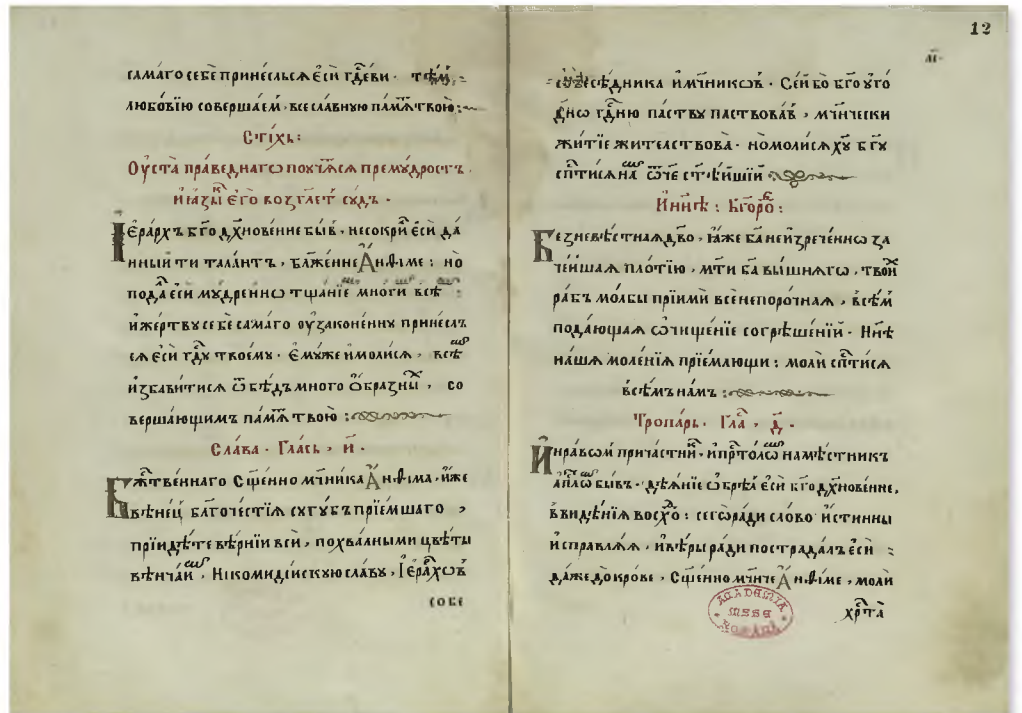 самáго себѐ принéсльсѧ є҆сѝ гдⷭ҇еви · тѣ́мⷤ ·
любóвїю совершáемⷨ · всеслáвную пáмѧⷮ твою̀ :~
Стíхъ :
Оу҆стà прáведнагѡ поучáⷮсѧ премýдростъ ·
и҆ ꙗ҆зы́ⷦ є҆гѡ̀ возг҃лет сýдъ ·
І҆ерáрхъ бг҃одх҃новéнне бы́въ , несокры́ⷧ є҆сѝ дá
нныйти талáнтъ , бл҃жéнне Ан̾ѳи́ме : но
подáⷧ є҆си мýдреннѡ тщáнїемⷨ многи всѣⷯ
и҆ жéртву себе самáго оу҆закóненну принéслъ
сѧ є҆сѝ гдⷭ҇у твоемý · є҆мýже и҆молисѧ , всѣⷨ
и҆збáвитисѧ ѿ бѣ́дъ много ѻ҆брáзныⷯ , со
вершáющимъ пáмѧⷮ твою̀ :
Слáва · Глáсъ , и҃ ·
Бжⷭ҇твéннаго Сщ҃éнно мч҃ника Ан̾ѳи́ма , и҆же
вѣнéцъ блг҃очéстїѧ сугýбъ прїéмшаго ,
прїидѣ́те вѣ́рнїи всѝ , похвáлными цвѣ́ты
вѣнчáиⷨ , Нїкомидíискую слáву , І҆ерáрхѡвⷡ
собе
12
собесѣ́дника и҆ мч҃никѡвⷡ · Сéи бо бг҃оугó
днѡ гдⷭ҇ню пáству паствовáвⷡ , мч҃нически
житїе жителствова · но моли́сѧ хⷭ҇у бг҃у
сп҃ти́сѧ нáмⷨ ѻ҆ч҃е ст҃ѣ́йшїй
И҆́нїнѣ : Бг҃орóⷣ :
Безневѣ́стнаѧ дв҃о , ꙗ҆́же бг҃а неи҆зречéннѡ за
чéншаѧ плóтїю , мт҃и бг҃а вы́шнѧгѡ , твои́хⷯ
рáбъ молбы̀ прїимѝ всенепорóчнаѧ , всѣ́мⷨ
подаю́щаѧ ѡ҆чищéнїе согрѣшéнїй · Нн҃ѣ
нáшѧ молéнїѧ прїéмлющи : молѝ сп҃ти́сѧ
всѣ́мъ нáмъ :
Тропáрь · Глáⷭ , д҃ ·
И҆ нрáвѡм причáстниⷦ , и҆прⷭ҇тóлѡⷨ намѣ́стникъ
а҆пⷭ҇лѡⷨ бывъ · дѣѧ́нїе ѡ҆брѣ́лъ є҆сѝ бг҃одх҃новéнне ,
в видѣ́нїѧ восхóⷣ : сегѡ̀ рáди слóво и҆́стинны
и҆справлѧ́ѧ , и҆вѣ́ры рáди пострадáлъ є҆сѝ :
дáже до крóве , Сщ҃éнно мч҃нче Ан̾ѳи́ме , молѝ
хрⷭ҇тà
ACADEMIA
MSSE
ROMÂNĂ